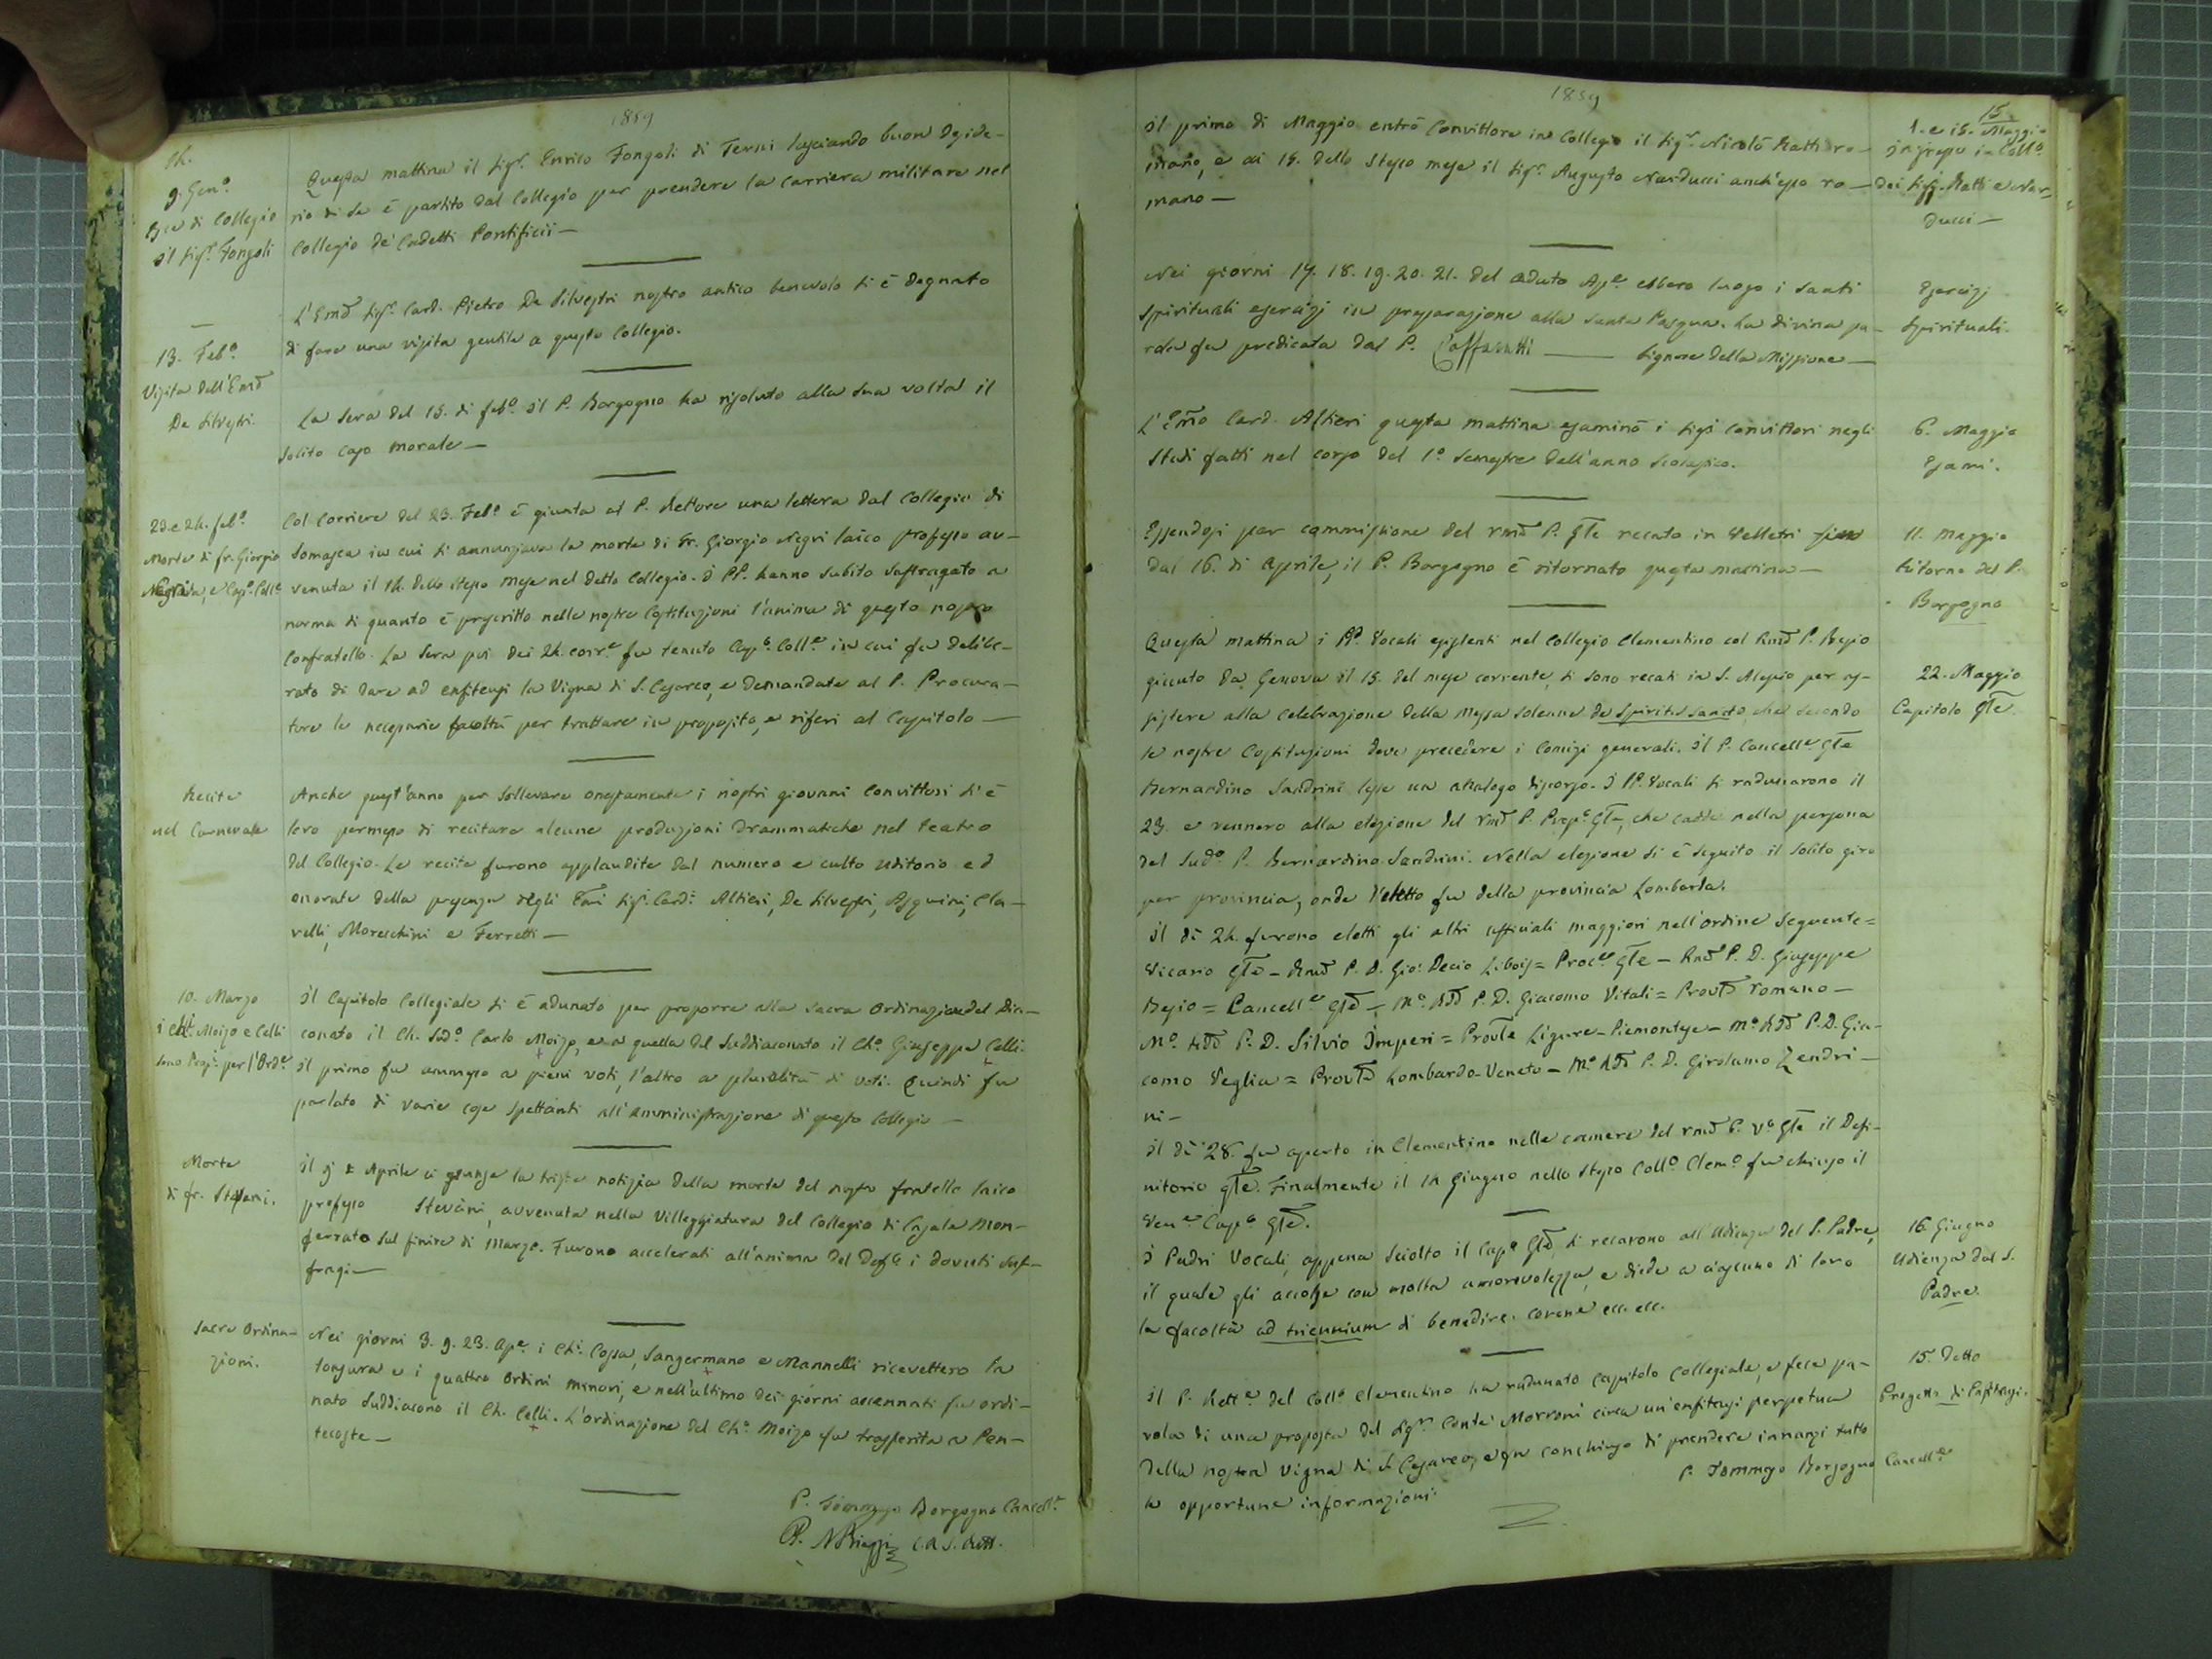 1859
14.
9. Gen.º
Esce di Collegio
il Sig.r Fongoli
Questa mattina il Sig.r Enrico Fongoli di Terni lasciando buon deside-
rio di se è partito dal Collegio per prendere la carriera militare nel
Collegio de' Cadetti Pontificii —
13. Feb.º
Visita dell'Emõ
De Silvestri.
L'Emõ Sig.r Card. Pietro De Silvestri nostro antico benevolo si è degnato
di fare una visita gentile a questo Collegio.
La sera del 15. di feb.º il P. Borgogno ha risoluto alla sua volta il
solito caso morale —
23. e 24. feb.º
Morte di fr. Giorgio
Negri, e Cap.º Coll.e
Col corriere del 23. Feb.º è giunta al P. Rettore una lettera dal Collegio di
Somasca in cui si annunziava la morte di Fr. Giorgio Negri laico professo av-
venuta il 14. dello stesso mese nel detto Collegio. I PP. hanno subito suffragato a
norma di quanto è prescritto nelle nostre Costituzioni l'anima di questo nostro
Confratello. La sera poi dei 24. corr.e fu tenuto Cap.º Coll.e in cui fu delibe-
rato di dare ad enfiteusi la Vigna di S. Cesareo, e demandate al P. Procura-
tore le necessarie facoltà per trattare in proposito, e riferi al Capitolo —
Recite
nel Carnevale
Anche quest'anno per sollevare onestamente i nostri giovani Convittori si è
loro permesso di recitare alcune produzioni drammatiche nel teatro
del Collegio. Le recite furono applaudite dal numero e culto uditorio ed
onorate della presenza degli Emi Sig.i Card.i Altieri, De Silvestri, Asquini, Cla-
relli, Moreschini e Ferretti —
10. Marzo
i Ch.i Moizo e Celli
sono Prop.i per l'Ord.e
Il Capitolo Collegiale si è adunato per proporre alla sacra Ordinazione del Dia-
conato il Ch. Sud.º Carlo Moizo, e a quella del Suddiaconato il Ch.º Giuseppe Celli.
Il primo fu ammesso a pieni voti, l'altro a pluralità di voti. Quindi fu
parlato di varie cose spettanti all'amministrazione di questo Collegio —
Morte
di fr. Stefani.
Il 9 Aprile ci giunse la triste notizia della morte del nostro fratello laico
professo Stevani, avvenuta nella villeggiatura del Collegio di Casale Mon-
ferrato sul finire di Marzo. Furono accelerati all'anima del Def.to i dovuti suf-
fragi —
Sacre Ordina-
zioni.
Nei giorni 3. 9. 23. Ap.e i Ch.i Cossa, Sangermano e Mannelli ricevettero la
tonsura e i quattro Ordini minori, e nell'ultimo dei giorni accennati fu ordi-
nato Suddiacono il Ch. Celli. L'ordinazione del Ch.º Moizo fu trasferita a Pen-
tecoste —
P. Tommaso Borgogno Cancell.e
P. N Biaggi C.R.S. Rett.
1859
15.
1. e 15. Maggio
ingresso in Coll.º
dei Sigg. Ratti e Nar-
ducci —
Il primo di Maggio entrò Convittore in Collegio il Sig.r Nicolò Ratti ro-
mano, e ai 15. dello stesso mese il Sig.r Augusto Narducci anch'esso ro-
mano —
Esercizj
Spirituali.
Nei giorni 17. 18. 19. 20. 21. del caduto Ap.e ebbero luogo i santi
spirituali esercizj in preparazione alla santa Pasqua. La divina pa-
rola fu predicata dal P. Caffaratti — Signore della Missione —
6. Maggio
Esami.
L'Emo Card. Altieri questa mattina esaminò i Sig.i convittori negli
studi fatti nel corso del 1º semestre dell'anno scolastico.
11. Maggio
Ritorno del P.
Borgogno
Essendosi per commissione del rmõ P. Gle recato in Velletri sino
dal 16. di Aprile, il P. Borgogno è ritornato questa mattina —
22. Maggio
Capitolo Gle.
Questa mattina i PP. Vocali esistenti nel Collegio Clementino col Rmõ P. Besio
giunto da Genova il 15. del mese corrente, si sono recati in S. Alessio per as-
sistere alla celebrazione della Messa solenne de Spiritu Sancto, che secondo
le nostre Costituzioni deve precedere i Comizi generali. Il P. Cancell.e Gle
Bernardino Sandrini lesse un analogo discorso. I PP. Vocali si radunarono il
23. e vennero alla elezione del rmõ P. Prep.º Gle, che cadde nella persona
del sud.º P. Bernardino Sandrini. Nella elezione si è seguito il solito giro
per provincia, onde l'eletto fu della provincia Lombarda.
Il dì 24. furono eletti gli altri Ufficiali maggiori nell'ordine seguente =
Vicario Gle — Rmõ P. D. Gio: Decio Libois = Proc.re Gle — Rmõ P. D. Giuseppe
Besio = Cancell.e Gle — M.º Rdõ P. D. Giacomo Vitali = Provle romano —
M.º Rdõ P. D. Silvio Imperi = Provle Ligure-Piemontese — M.º Rdõ P. D. Gia-
como Veglia = Provle Lombardo-Veneto — M.º Rdõ P. D. Girolamo Zendri-
ni —
Il dì 28. fu aperto in Clementino nelle camere del rmõ P. V.º Gle il Defi-
nitorio gle. Finalmente il 14 Giugno nello stesso Coll.º Clem.º fu chiuso il
Ven.e Cap.º Gle.
16. Giugno
Udienza dal S.
Padre.
I Padri Vocali, appena sciolto il Cap.º Gle, si recarono all'udienza del S. Padre,
il quale gli accolse con molta amorevolezza, e diede a ciascuno di loro
la facoltà ad triennium di benedire corone ecc. ecc.
15. Detto
Progetto di Enfiteusi.
Il P. Rett.e del Coll.º Clementino ha radunato Capitolo Collegiale, e fece pa-
rola di una proposta del Sig.r Conte Morroni circa un'enfiteusi perpetua
della nostra Vigna di S. Cesareo, e fu conchiuso di prendere innanzi tutto
le opportune informazioni.
P. Tommaso Borgogno Cancell.e